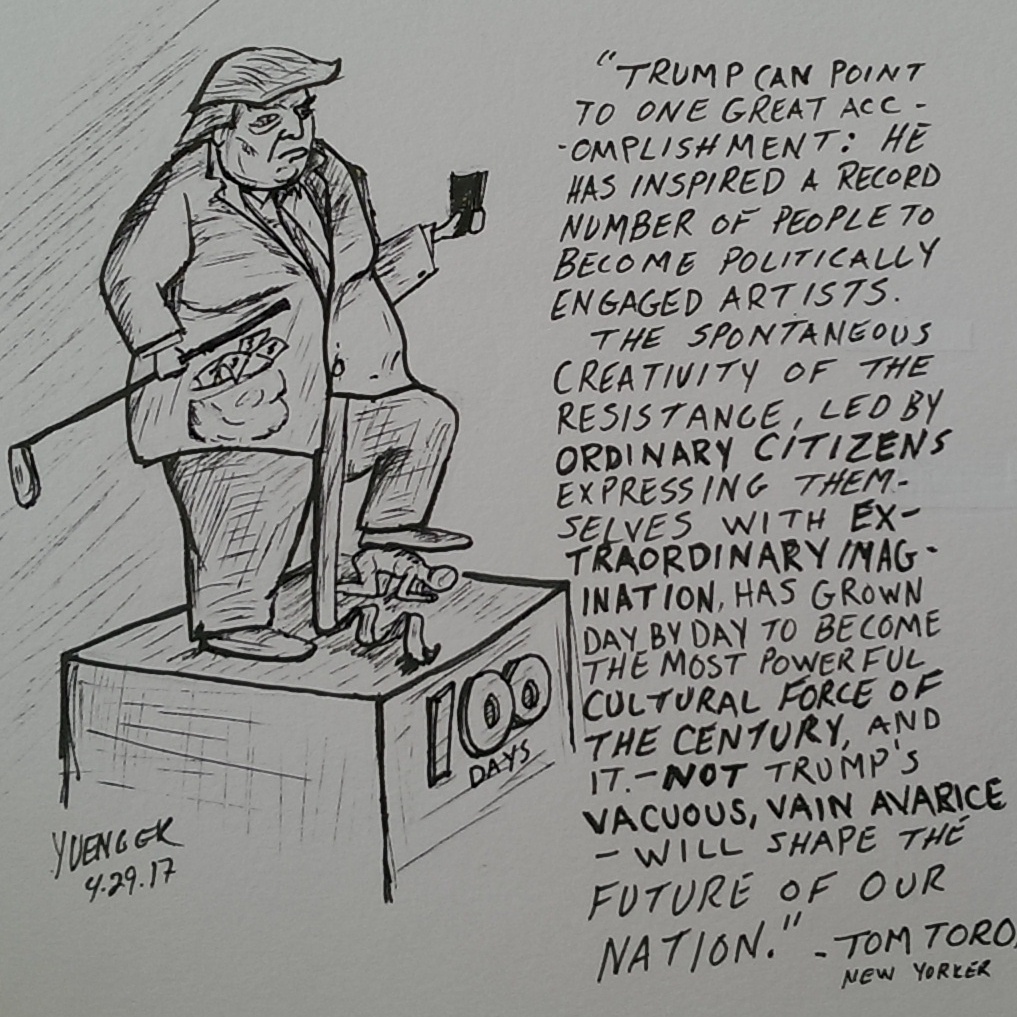 "TRUMP CAN POINT
TO ONE GREAT ACC-
-OMPLISHMENT: HE
HAS INSPIRED A RECORD
NUMBER OF PEOPLE TO
BECOME POLITICALLY
ENGAGED ARTISTS.
THE SPONTANEOUS
CREATIVITY OF THE
RESISTANCE, LED BY
ORDINARY CITIZENS
EXPRESSING THEM-
SELVES WITH EX-
TRAORDINARY IMAG-
INATION, HAS GROWN
DAY BY DAY TO BECOME
THE MOST POWERFUL
CULTURAL FORCE OF
THE CENTURY, AND
IT.-NOT TRUMP'S
VACUOUS, VAIN AVARICE
- WILL SHAPE THE
FUTURE OF OUR
NATION." - TOM TORO,
NEW YORKER
100
DAYS
YUENGER
4.29.17